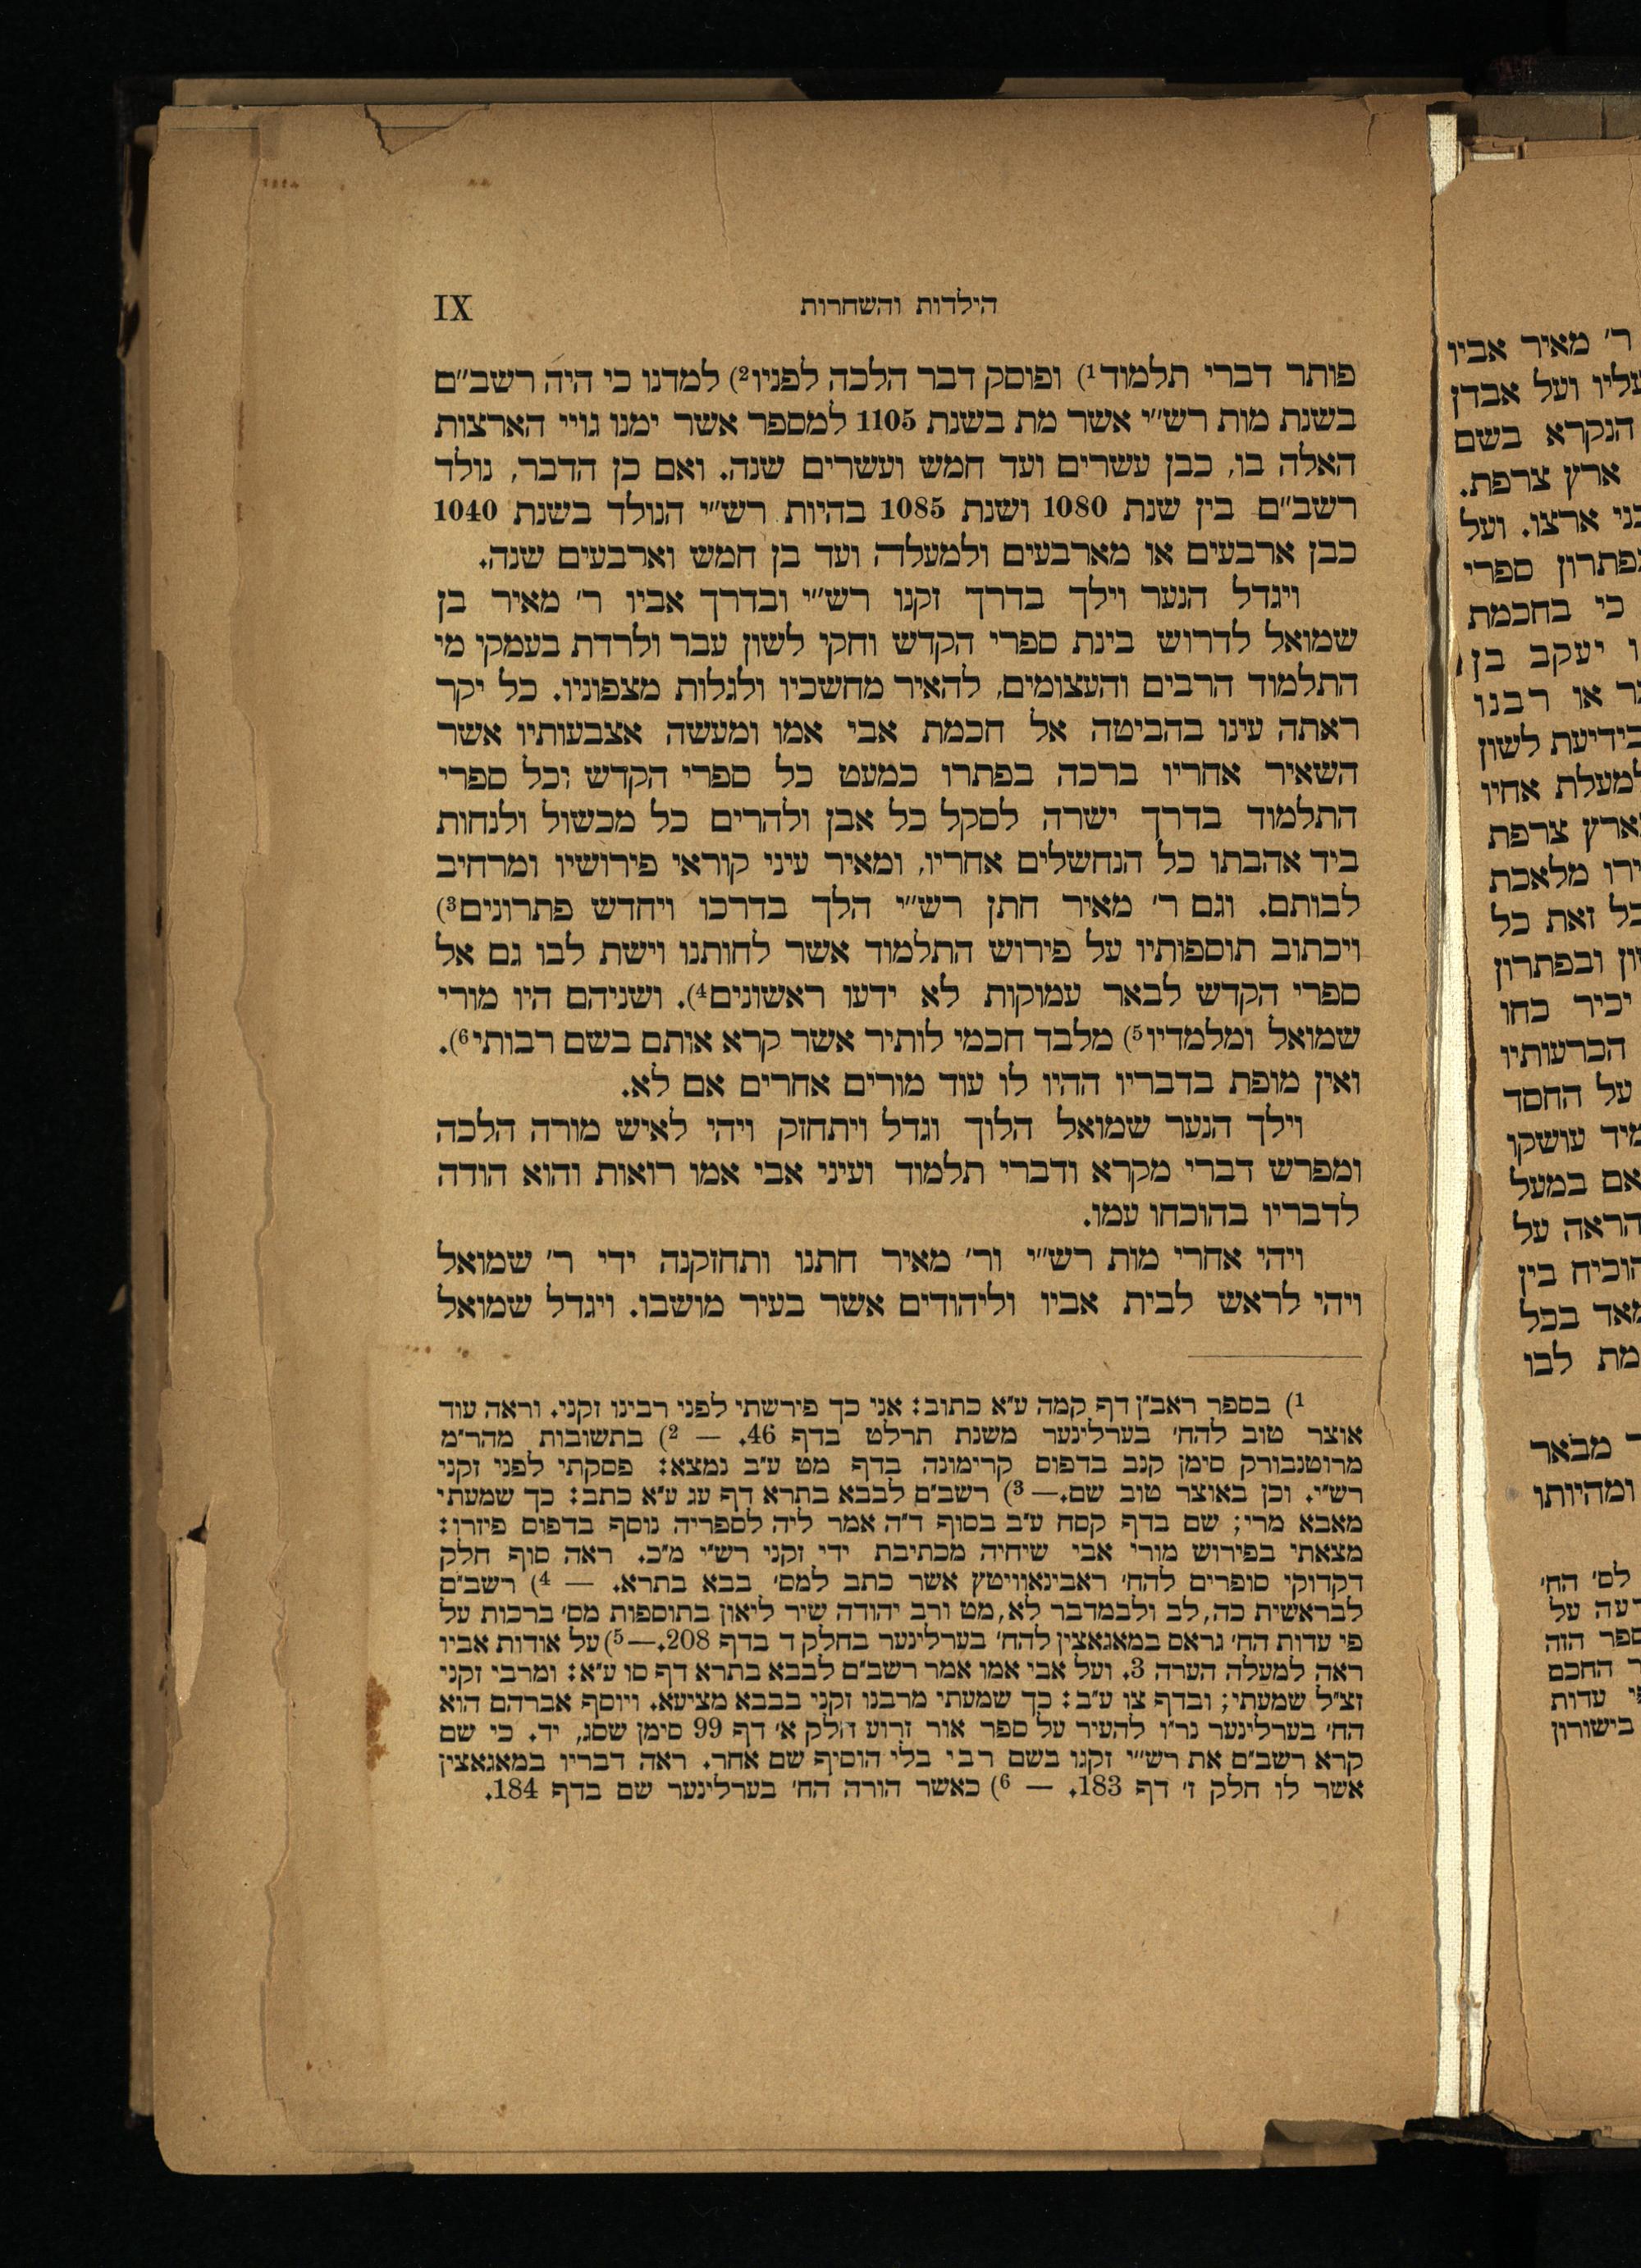 הילדות והשחרות IX
פותר דברי תלמוד¹) ופוסק דבר הלכה לפניו²) למדנו כי היה רשב״ם
בשנת מות רש״י אשר מת בשנת 1105 למספר אשר ימנו גויי הארצות
האלה בו, כבן עשרים ועד חמש ועשרים שנה. ואם כן הדבר, נולד
רשב״ם בין שנת 1080 ושנת 1085 בהיות רש״י הנולד בשנת 1040
כבן ארבעים או מארבעים ולמעלה ועד בן חמש וארבעים שנה.
ויגדל הנער וילך בדרך זקנו רש״י ובדרך אביו ר׳ מאיר בן
שמואל לדרוש בינת ספרי הקדש וחקי לשון עבר ולרדת בעמקי מי
התלמוד הרבים והעצומים, להאיר מחשכיו ולגלות מצפוניו. כל יקר
ראתה עינו בהביטה אל חכמת אבי אמו ומעשה אצבעותיו אשר
השאיר אחריו ברכה בפתרו כמעט כל ספרי הקדש וכל ספרי
התלמוד בדרך ישרה לסקל כל אבן ולהרים כל מכשול ולנחות
ביד אהבתו כל הנחשלים אחריו, ומאיר עיני קוראי פירושיו ומרחיב
לבותם. וגם ר׳ מאיר חתן רש״י הלך בדרכו ויחדש פתרונים³)
ויכתוב תוספותיו על פירוש התלמוד אשר לחותנו וישת לבו גם אל
ספרי הקדש לבאר עמוקות לא ידעו ראשונים⁴). ושניהם היו מורי
שמואל ומלמדיו⁵) מלבד חכמי לותיר אשר קרא אותם בשם רבותי⁶).
ואין מופת בדבריו ההיו לו עוד מורים אחרים אם לא.
וילך הנער שמואל הלוך וגדל ויתחזק ויהי לאיש מורה הלכה
ומפרש דברי מקרא ודברי תלמוד ועיני אבי אמו רואות והוא הודה
לדבריו בהוכחו עמו.
ויהי אחרי מות רש״י ור׳ מאיר חתנו ותחזקנה ידי ר׳ שמואל
ויהי לראש לבית אביו וליהודים אשר בעיר מושבו. ויגדל שמואל
¹) בספר ראב״ן דף קמה ע״א כתוב: אני כך פירשתי לפני רבינו זקני. וראה עוד
אוצר טוב להח׳ בערלינער משנת תרלט בדף 46. — ²) בתשובות מהר״מ
מרוטנבורק סימן קנב בדפוס קרימונה בדף מט ע״ב נמצא: פסקתי לפני זקני
רש״י. וכן באוצר טוב שם. — ³) רשב״ם לבבא בתרא דף עג ע״א כתב: כך שמעתי
מאבא מרי; שם בדף קסח ע״ב בסוף ד״ה אמר ליה לספריה נוסף בדפוס פיזרו:
מצאתי בפירוש מורי אבי שיחיה מכתיבת ידי זקני רש״י מ״כ. ראה סוף חלק
דקדוקי סופרים להח׳ ראבינאוויטץ אשר כתב למס׳ בבא בתרא. — ⁴) רשב״ם
לבראשית כה, לב ולבמדבר לא, מט ורב יהודה שיר ליאון בתוספות מס׳ ברכות על
פי עדות הח׳ גראם במאגאצין להח׳ בערלינער בחלק ד בדף 208. — ⁵) על אודות אביו
ראה למעלה הערה 3. ועל אבי אמו אמר רשב״ם לבבא בתרא דף סו ע״א: ומרבי זקני
זצ״ל שמעתי; ובדף צו ע״ב: כך שמעתי מרבנו זקני בבבא מציעא. ויוסף אברהם הוא
הח׳ בערלינער נר״ו להעיר על ספר אור זרוע חלק א׳ דף 99 סימן שסג, יד. כי שם
קרא רשב״ם את רש״י זקנו בשם רבי בלי הוסיף שם אחר. ראה דבריו במאגאצין
אשר לו חלק ז׳ דף 183. — ⁶) כאשר הורה הח׳ בערלינער שם בדף 184.
ר׳ מאיר אביו
עליו ועל אבדן
הנקרא בשם
ארץ צרפת.
בני ארצו. ועל
ספרי
כי בחכמת
יעקב בן
או רבנו
בידיעת לשון
למעלת אחיו
צרפת
מלאכת
זאת כל
ובפתרון
יכיר כחו
הכרעותיו
על החסד
עושקו
אם במעל
הראה על
הוכיח בין
מאד בכל
לבו
מבאר
ומהיותו
לס׳ הח׳
על
הזה
החכם
עדות
בישורון